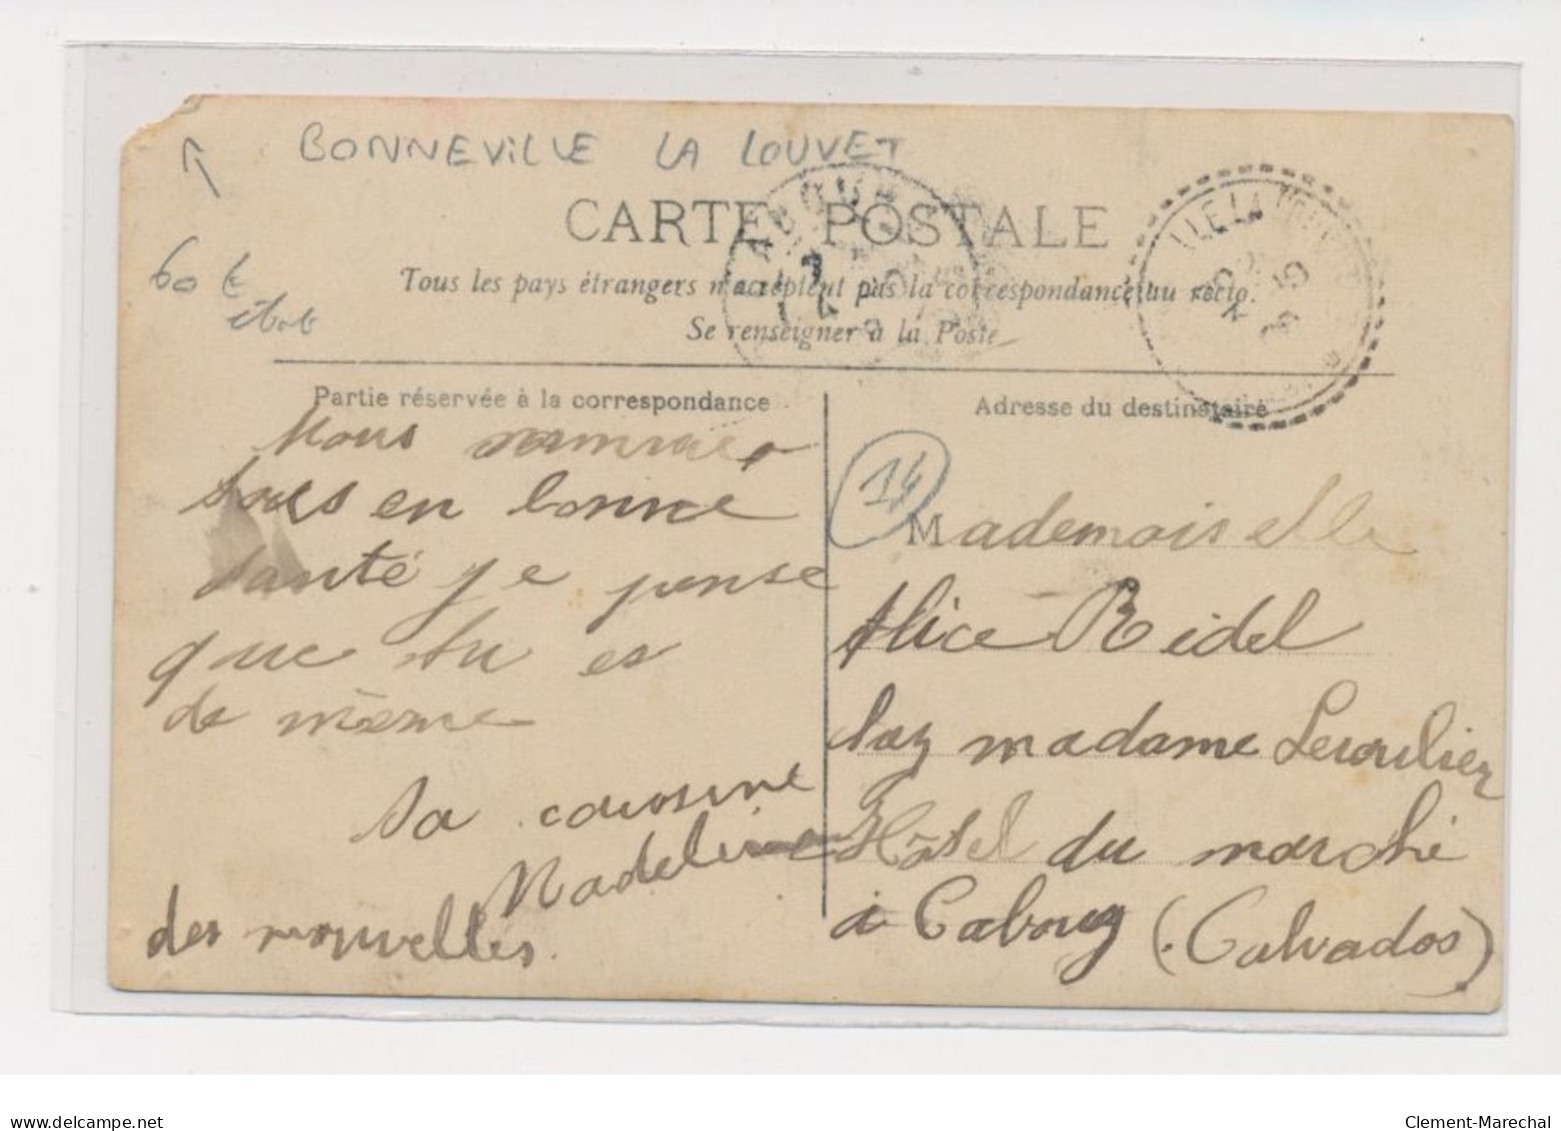 BONNEVILLE LA LOUVET
CARTE POSTALE
60 €
Tous les pays étrangers n'acceptent pas la correspondance au recto.
Se renseigner à la Poste
Partie réservée à la correspondance
Nous sommes
tous en bonne
santé je pense
que tu es
de même
Ta cousine
Madeleine
des nouvelles.
Adresse du destinataire
14
Mademoiselle
Alice Reidel
chez madame Lecoulier
Hôtel du marché
à Cabourg (Calvados)
delcampe.net
Clement-Marechal